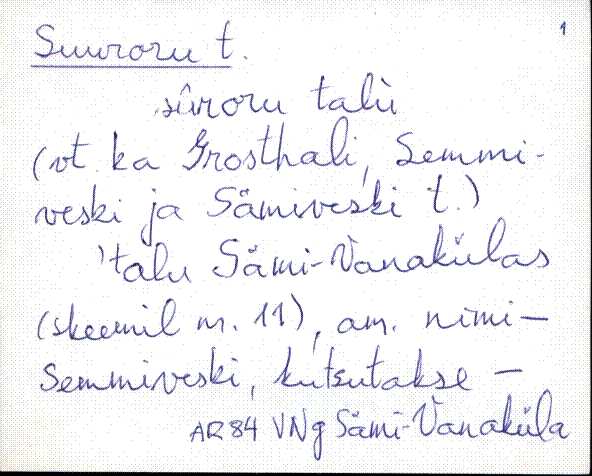 1
Suuroru t.
sûroru talù
(vt. ka Grosthali, Semmi-
veski ja Sämiveski t.)
'talu Sämi-Vanakülas
(skeemil nr. 11), am. nimi —
Semmiveski, kutsutakse —
AR84 VNg Sämi-Vanaküla